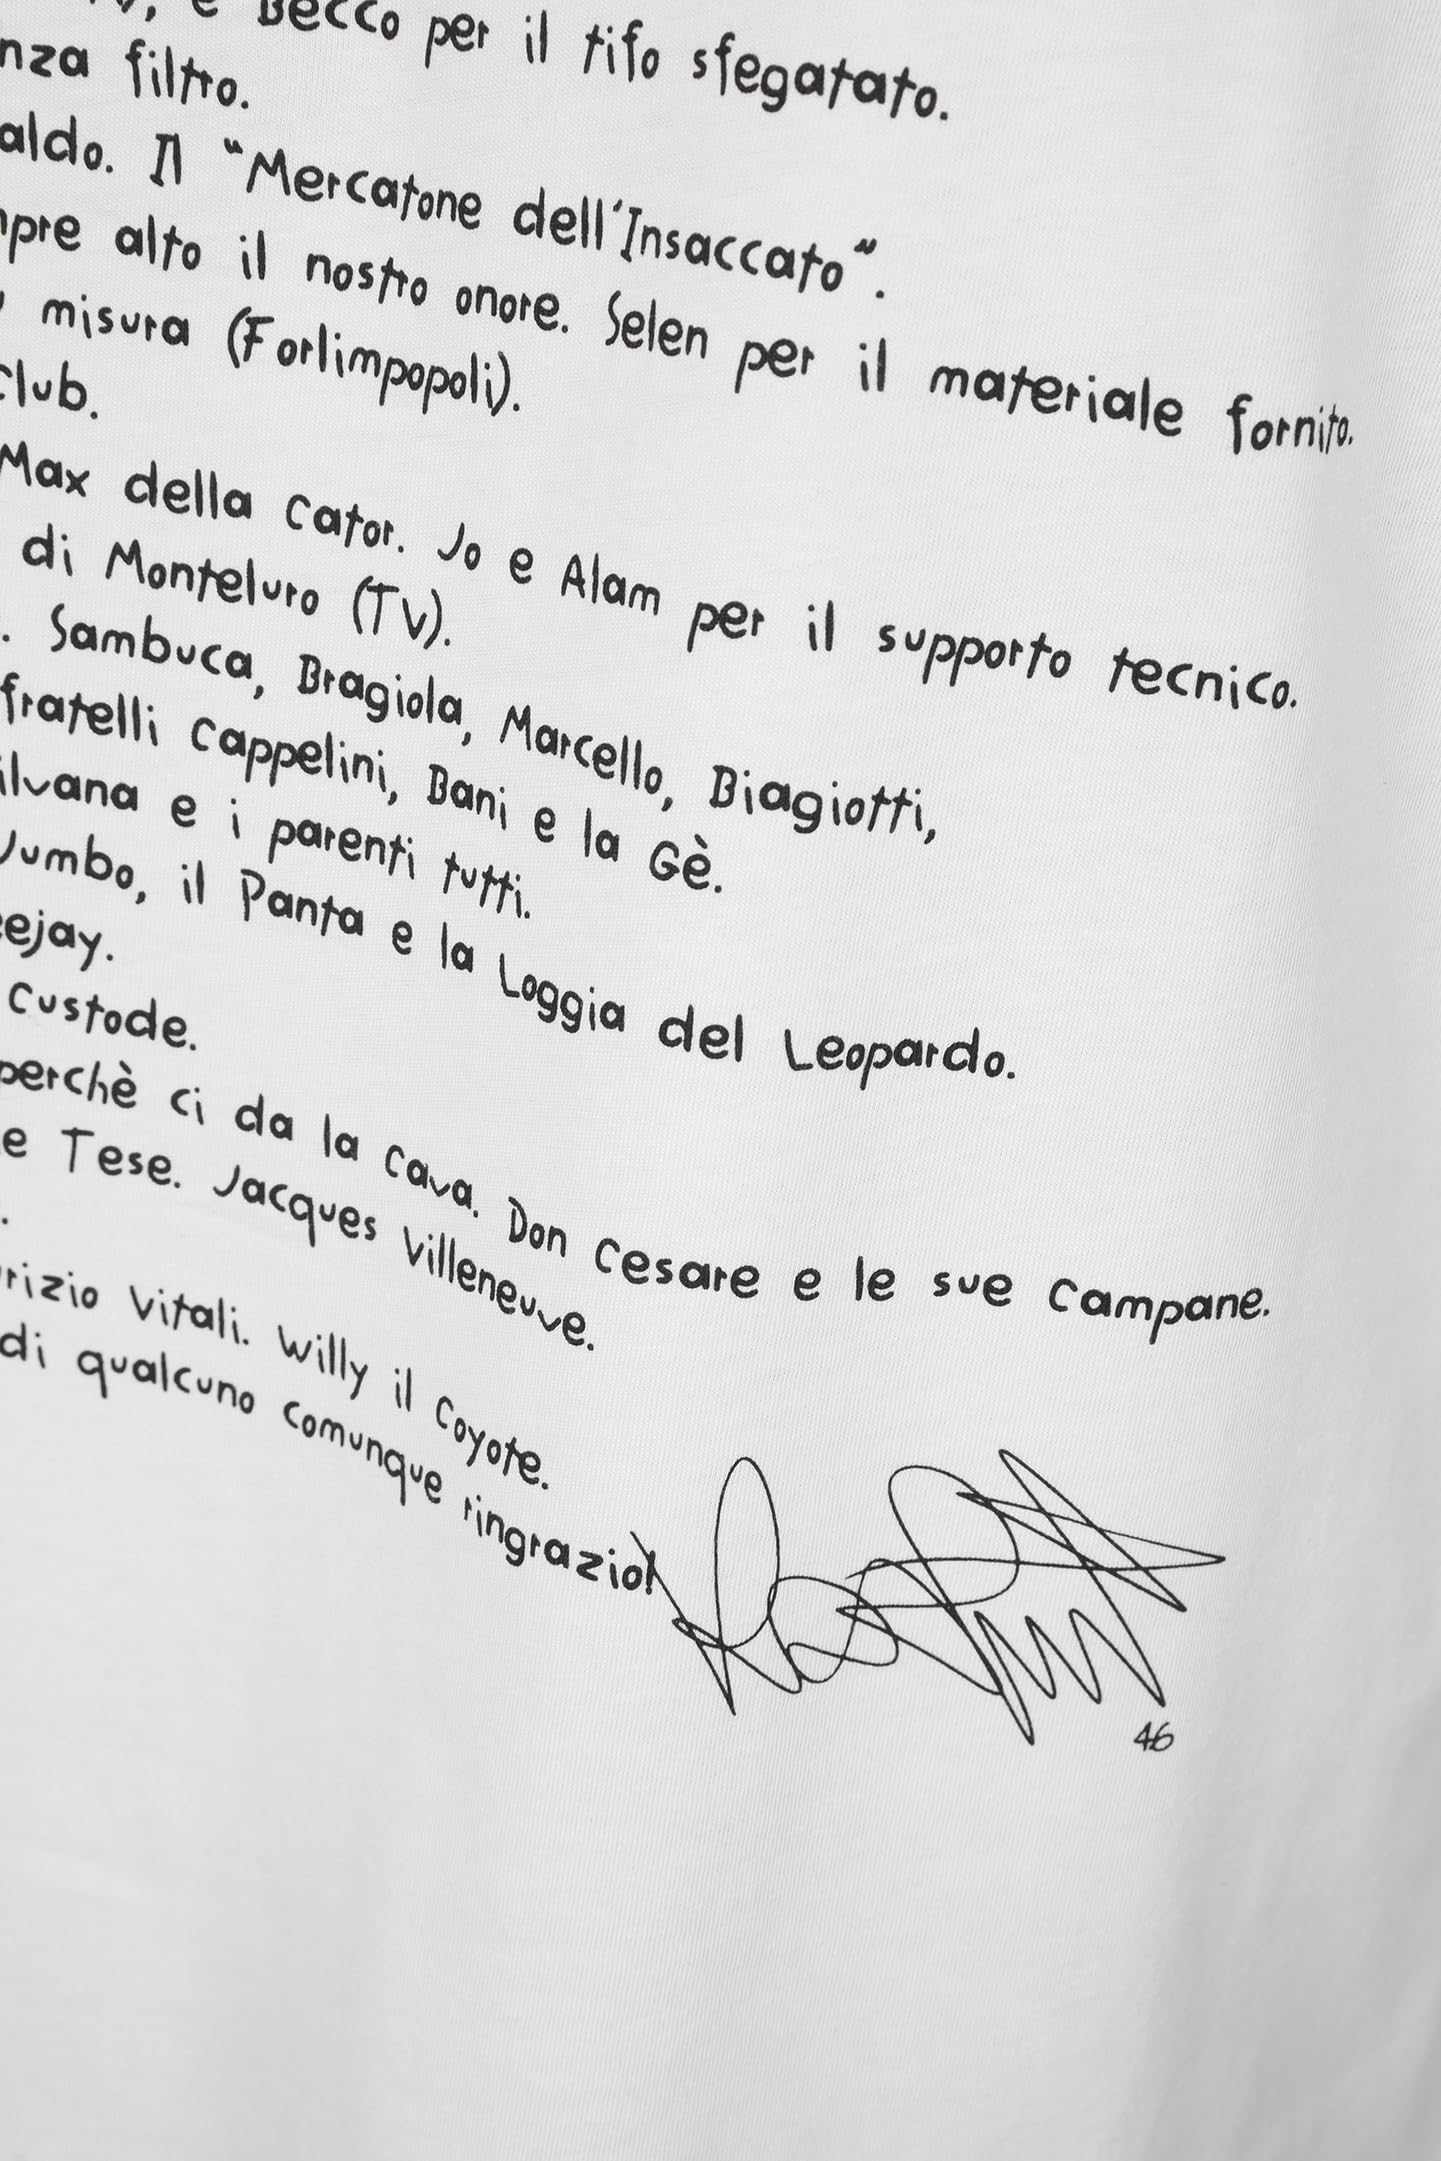 e Becco per il tifo sfegatato.
nza filtro.
aldo. Il "Mercatone dell'Insaccato".
mpre alto il nostro onore. Selen per il materiale fornito.
misura (Forlimpopoli).
club.
Max della Cator. Jo e Alam per il supporto tecnico.
di Monteluro (TV).
. Sambuca, Bragiola, Marcello, Biagiotti,
fratelli Cappelini, Bani e la Gè.
ilvana e i parenti tutti.
Jumbo, il Panta e la Loggia del Leopardo.
eejay.
Custode.
perchè ci da la cava. Don Cesare e le sue Campane.
e Tese. Jacques Villeneuve.
.
rizio Vitali. Willy il Coyote.
di qualcuno comunque ringrazio!
46